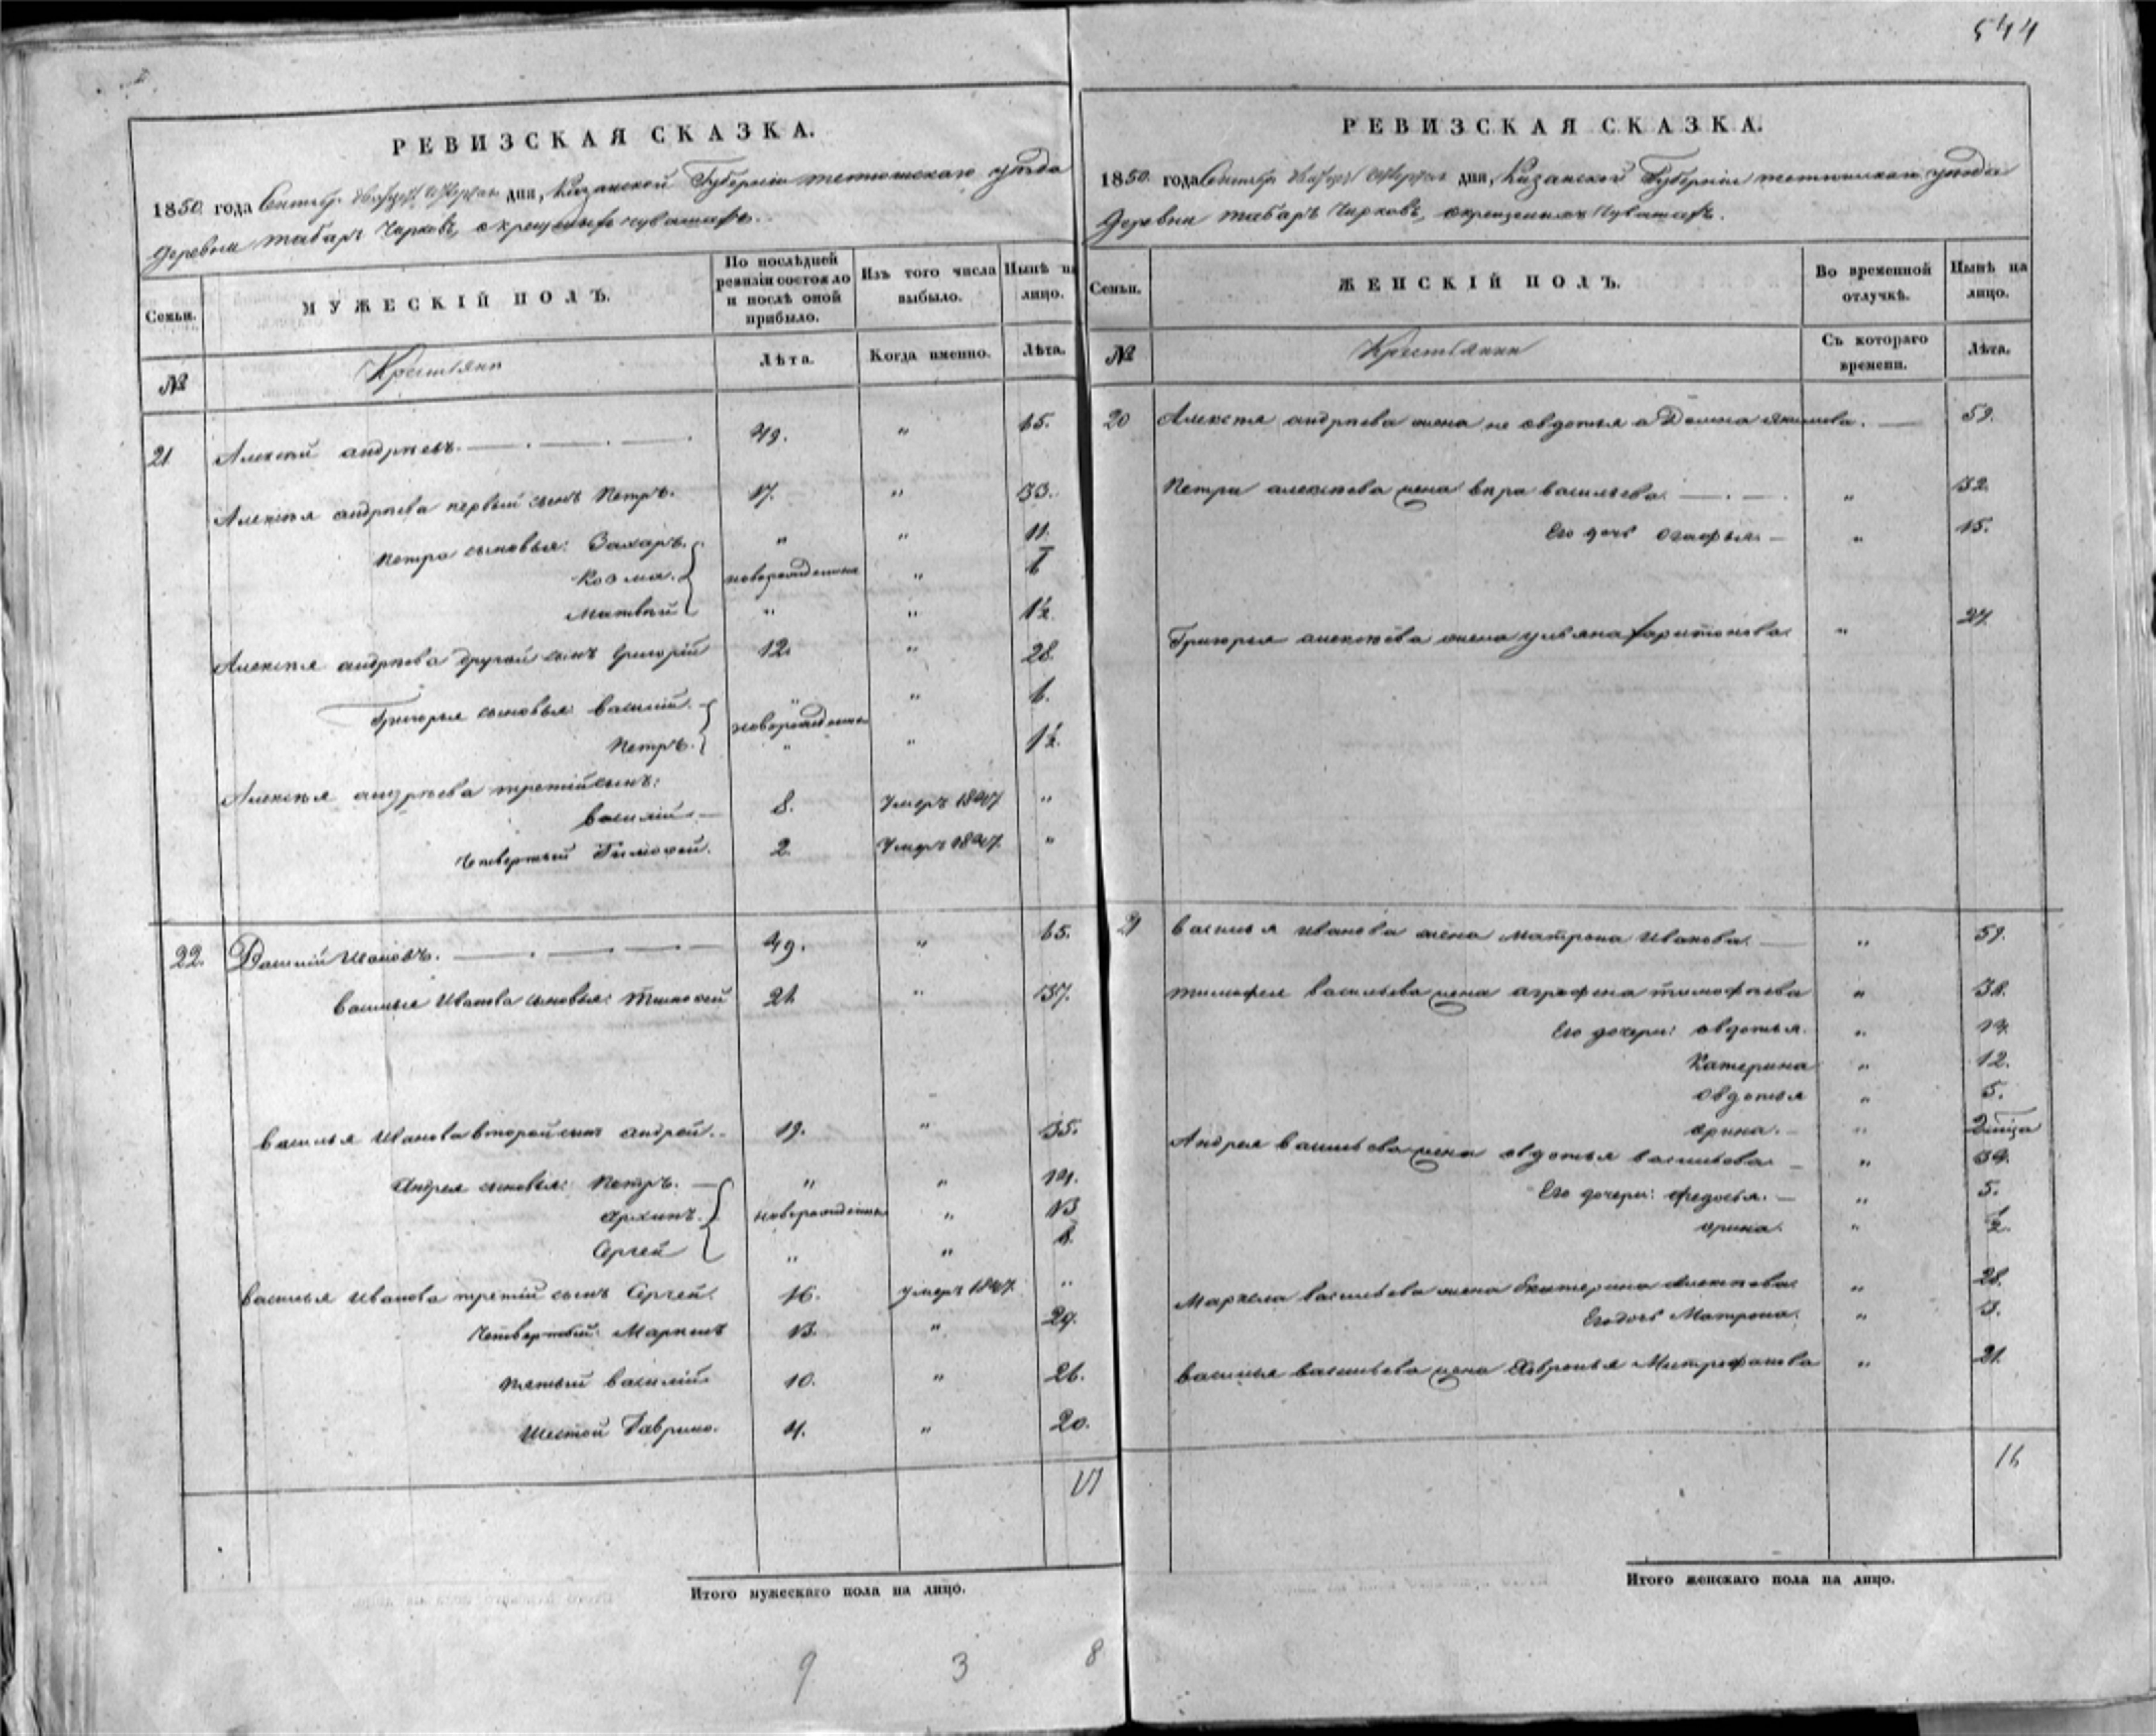 544
РЕВИЗСКАЯ СКАЗКА.
1850 года Сентяб. дня, Казанской Губерніи тетюшскаго уѣзда
Деревни табаръ Черковъ, окрещеныхъ чувашахъ.
Семьи. МУЖЕСКІЙ ПОЛЪ. По послѣдней ревизіи состояло и послѣ оной прибыло. Изъ того числа выбыло. Нынѣ на лицо.
№ Крестьяне Лѣта. Когда именно. Лѣта.
21 Алексѣй андрѣевъ. 49. " 65.
Алексѣя андрѣева первый сынъ Петръ. 17. " 33.
Петра сыновья: Захаръ. " " 11.
Козма. новорожденные " 6
Матвѣй " " 1½
Алексѣя андрѣева другой сынъ Григорій 12. " 28.
Григорья сыновья: василій. " " 6.
Петръ. новорожденные " 1½.
Алексѣя андрѣева третій сынъ:
василій. 8. Умеръ 1847 "
четвертый Тимофей. 2. Умеръ 1847. "
22. Василій Ивановъ. 49. " 65.
василья Иванова сыновья: тимофей 21. " 37.
василья Иванова второй сынъ андрей. 19. " 35.
Андрея сыновья: Петръ. " " 14.
архипъ. новорожденные " 13
Сергей " " 8.
василья Иванова третій сынъ Сергей. 16. умеръ 1847. "
Четвертый: Маркелъ 13. " 29.
пятый василій 10. " 26.
Шестой Гаврило. 4. " 20.
17
Итого мужескаго пола на лицо.
9 3 8
РЕВИЗСКАЯ СКАЗКА.
1850 года Сентября дня, Казанской Губерніи тетюшскаго уѣзда
Деревни табаръ Черковъ, окрещеныхъ Чувашахъ.
Семьи. ЖЕНСКІЙ ПОЛЪ. Во временной отлучкѣ. Нынѣ на лицо.
№ Крестьянки Съ котораго времени. Лѣта.
20 Алексѣя андрѣева жена не овдотья а Домна Якимова. 59.
Петра алексѣева жена вѣра васильева. " 32.
Его дочь огафья. " 15.
Григорья алексѣева жена ульяна харитонова. " 27.
21 василья иванова жена матрона Иванова. " 59.
тимофея васильева жена аграфена тимофѣева " 38.
Его дочери: овдотья. " 14.
Катерина " 12.
овдотья " 5.
орина. "
Андрея васильева жена овдотья васильева. " 34.
Его дочери: федосья. " 5.
орина. " ½.
Маркела васильева жена Екатерина алексѣева. " 28.
Его дочь Матрона. " 3.
василья васильева жена Февронья Митрофанова " 21.
16
Итого женскаго пола на лицо.